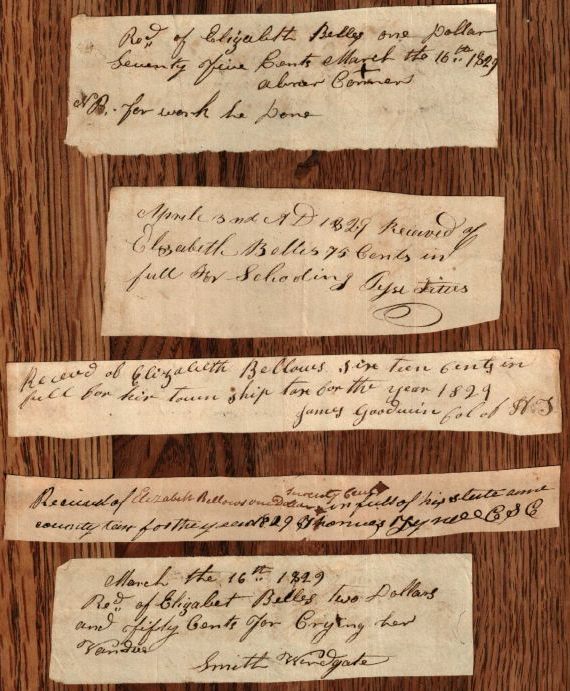 Recd of Elizabeth Belles one Dollar
Seventy five Cents March the 16th 1829
abner Conners
NB. for work he Done
Aprile 2nd AD 1829 Received of
Elizabeth Belles 75 Cents in
full For Schooling
Receved of Elizabeth Bellows Six teen Cents in
full for hir town ship tax for the year 1829
James Goodwin Col of
Recived of Elizabeth Bellows one Dollar
in full of hir state and
county tax for the year 1829 Thomas
March the 16th 1829
Recd of Elizabet Belles two Dollars
and fifty Cents for Crying her
Vandue
Smith Windgate